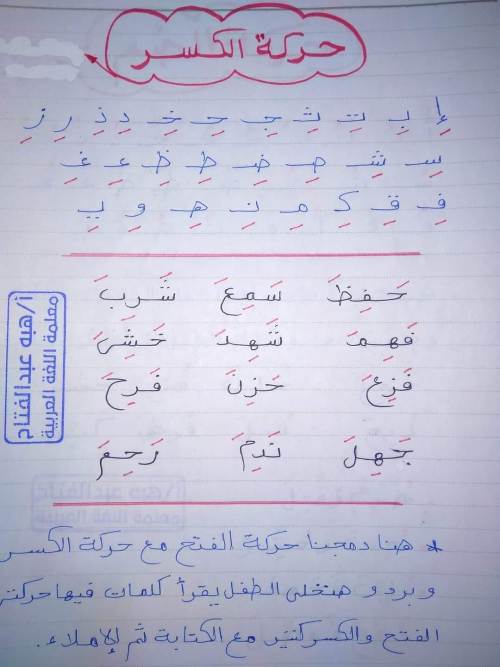 حركة الكسر
إِ بِ تِ ثِ جِ حِ خِ دِ ذِ رِ زِ
سِ شِ صِ ضِ طِ ظِ عِ غِ
فِ قِ كِ مِ نِ هِ وِ يِ
حَفِظَ سَمِعَ شَرِبَ
فَهِمَ شَهِدَ خَشِىَ
فَزِعَ حَزِنَ فَرِحَ
جَهِلَ نَدِمَ رَحِمَ
أ/هبه عبدالفتاح
معلمة اللغة العربية
* هنا دمجنا حركة الفتح مع حركة الكسر
وبردو هنخلى الطفل يقرأ كلمات فيها حركتى
الفتح والكسر كتير مع الكتابة ثم الإملاء.